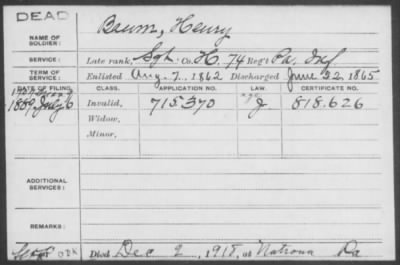 DEAD
NAME OF SOLDIER: Baum, Henry
SERVICE: Late rank, Sgt. Co. H. 74 Reg't Pa. Inf
TERM OF SERVICE: Enlisted Aug. 7, 1862 Discharged June 22, 1865
DATE OF FILING. CLASS. APPLICATION NO. LAW. CERTIFICATE NO.
1889 July 6 Invalid, 715370 J 818.626
Widow,
Minor,
ADDITIONAL SERVICES:
REMARKS:
Died Dec 2, 1918, at Natrona Pa